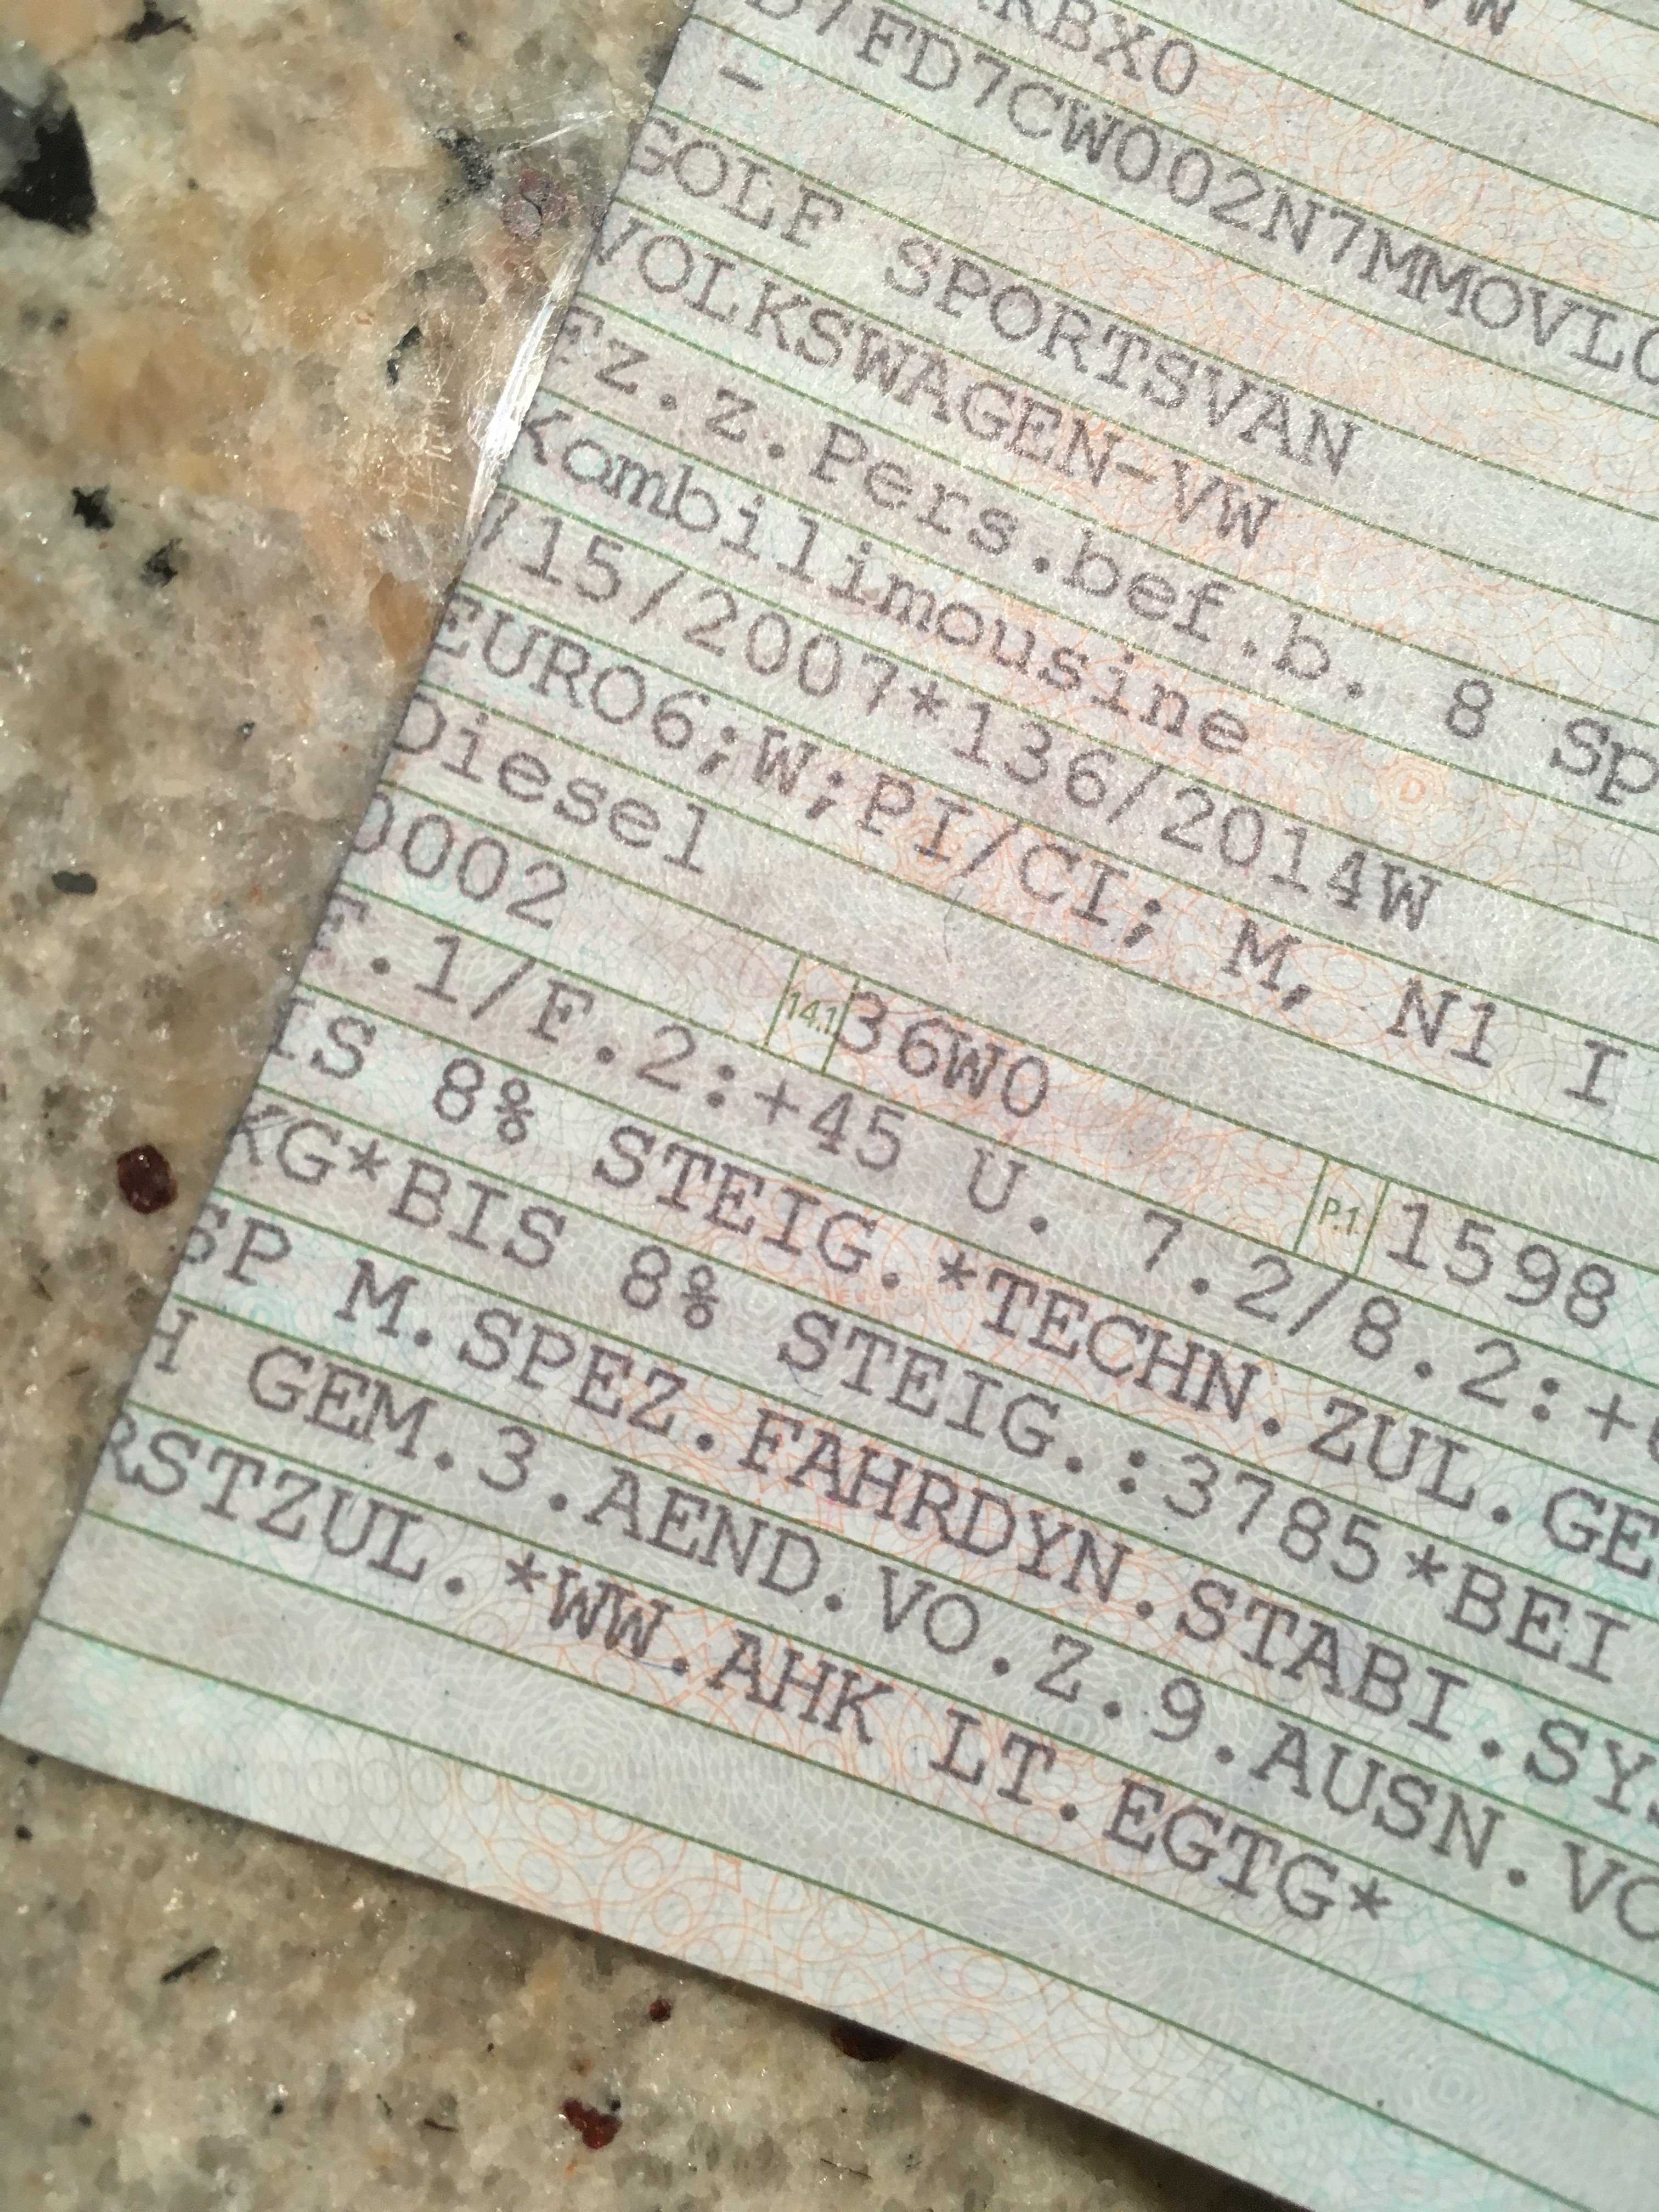 VW
RBX0
D7FD7CW002N7MMOVLO
-
GOLF SPORTSVAN
VOLKSWAGEN-VW
Fz.z.Pers.bef.b. 8 Sp
Kombilimousine
715/2007*136/2014W
EURO6;W;PI/CI; M, N1 I
Diesel
0002 14.1 36W0 P.1. 1598
F.1/F.2:+45 U. 7.2/8.2:+6
IS 8% STEIG.*TECHN.ZUL.GE
KG*BIS 8% STEIG.:3785*BEI
SP M.SPEZ.FAHRDYN.STABI.SYS
H GEM.3.AEND.VO.Z.9.AUSN.VO
RSTZUL.*WW.AHK LT.EGTG*